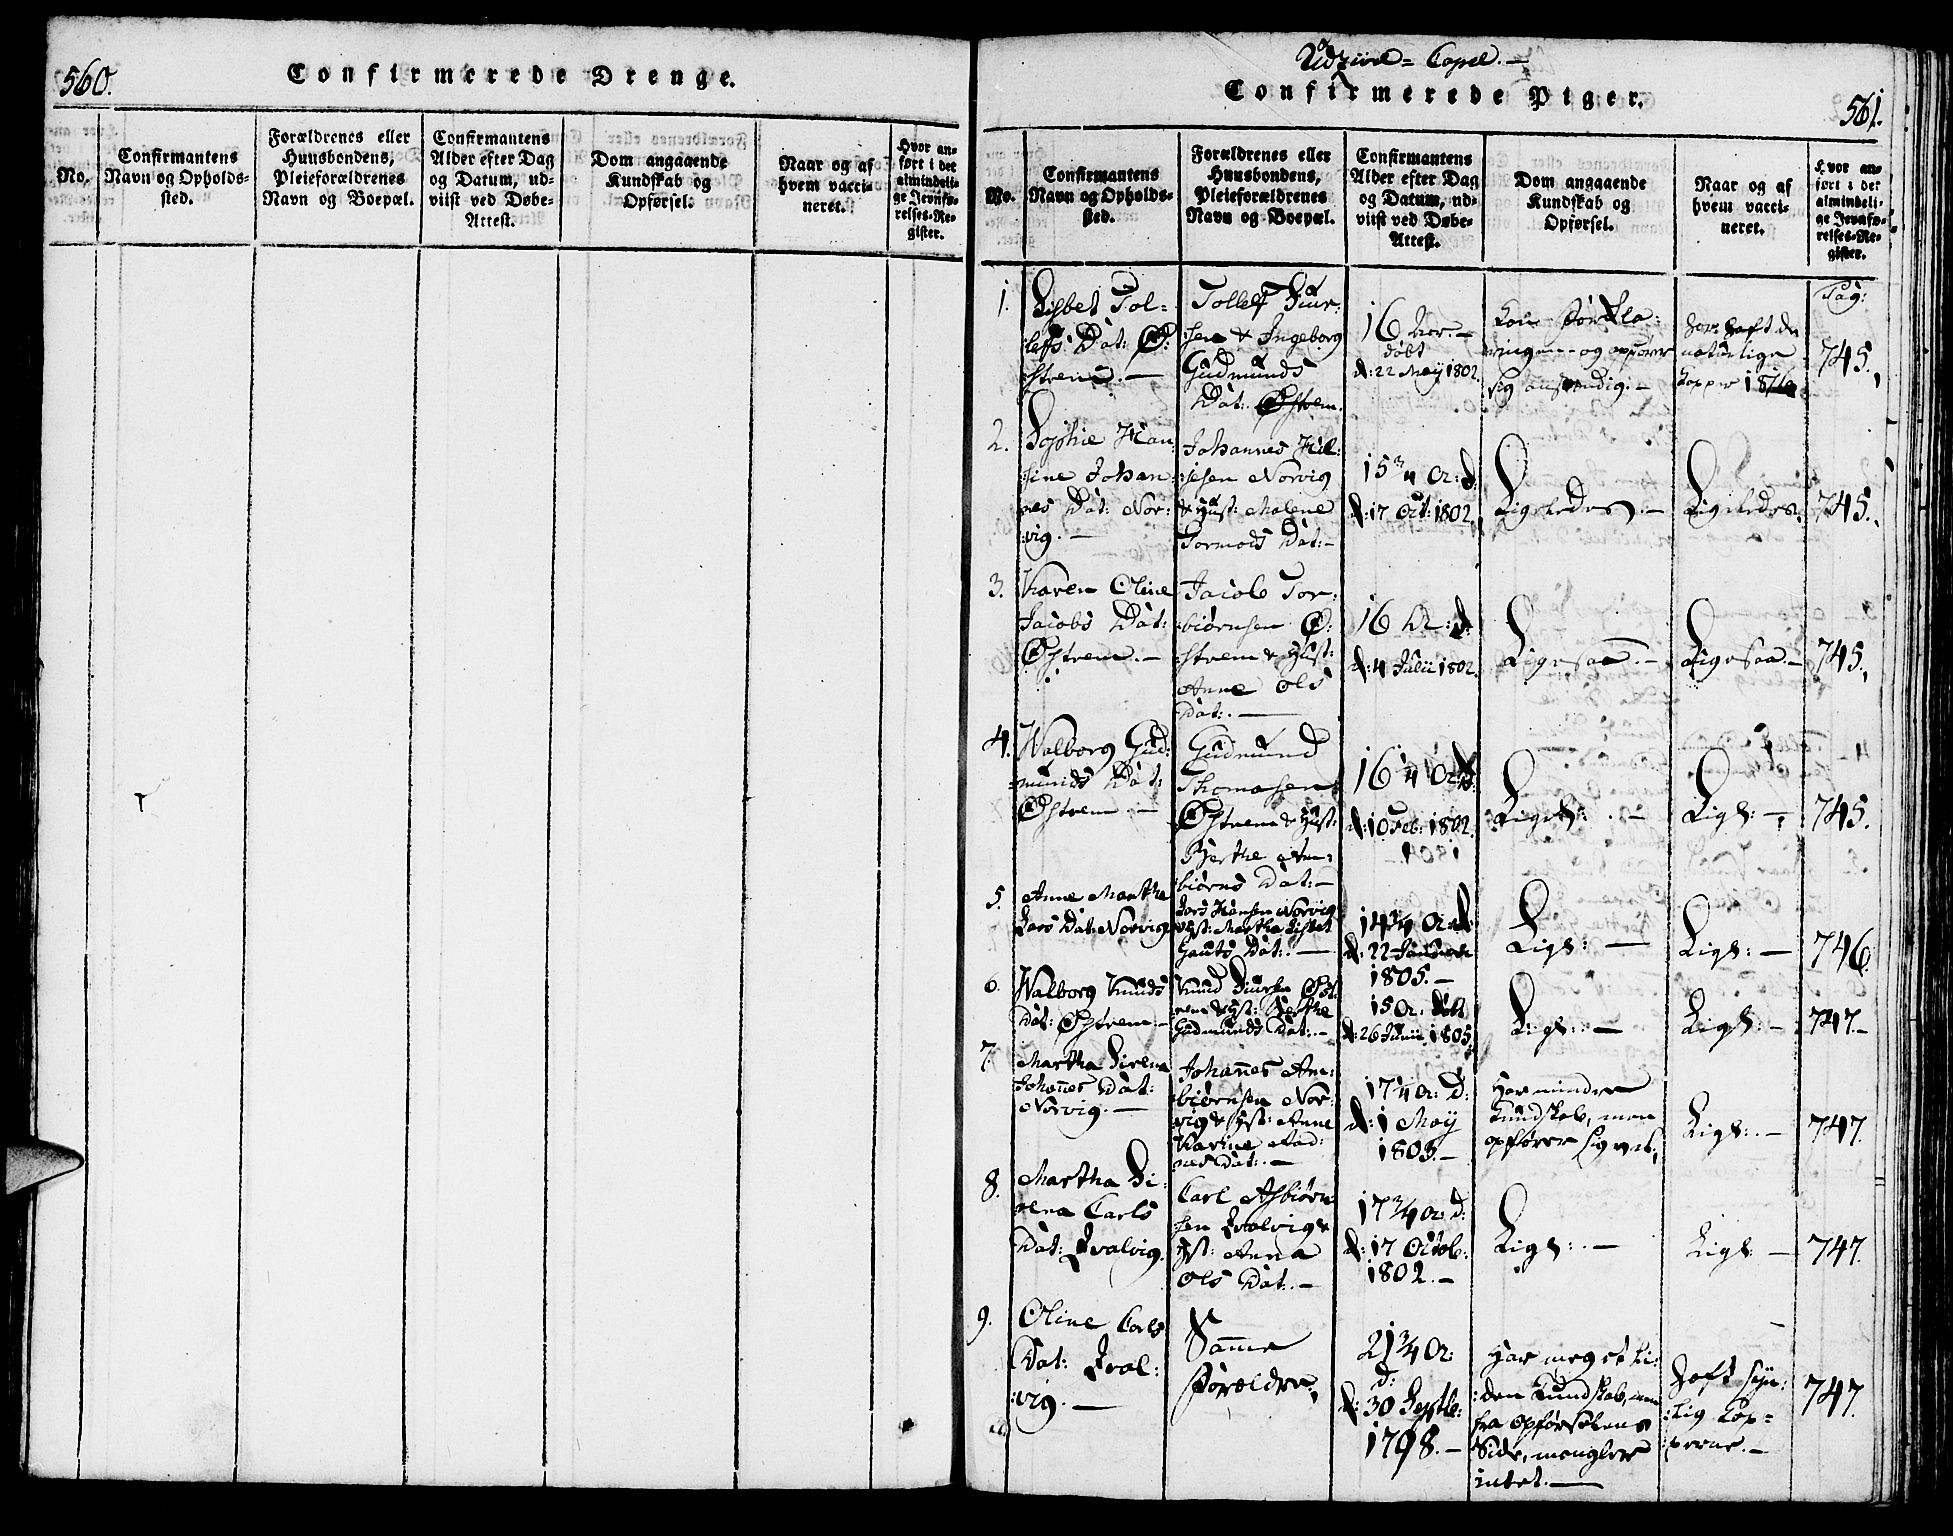 560.
Confirmerede Drenge.
No.
Confirmantens
Navn og Opholds-
sted.
Forældrenes eller
Huusbondens,
Pleieforældrenes
Navn og Boepæl.
Confirmantens
Alder efter Dag
og Datum, ud-
viist ved Døbe-
Attest.
Dom angaaende
Kundskab og
Opførsel.
Naar og af
hvem vacci-
neret.
Hvor an-
ført i det
almindeli-
ge Jevnfø-
relses-Re-
gister.
Capel. —
Confirmerede Piger.
561.
No.
Confirmantens
Navn og Opholds-
sted.
Forældrenes eller
Huusbondens,
Pleieforældrenes
Navn og Boepæl.
Confirmantens
Alder efter Dag
og Datum, ud-
viist ved Døbe-
Attest.
Dom angaaende
Kundskab og
Opførsel.
Naar og af
hvem vacci-
neret.
Hvor an-
ført i det
almindeli-
ge Jevnfø-
relses-Re-
gister.
1.
Lisbet Tol-
lefs Dat: Ø:
strem. —
Tollef Siur-
sen & Ingeborg
Gudmunds
Dat: Østrem.
16 Aar. —
døbt
d: 22 Maÿ 1802.
og opfører
sig anstændig. —
har haft de
naturlige
Kopper
Pag:
745.
2.
Sophie Han
sine Johan-
nes Dat: Nor:
vig. —
Johannes
Norvig
& Hust: Malene
Tormods Dat: —
15 3/4 Ar: d:
d: 17 Oct: 1802.
Ligeledes. —
Ligeledes.
745.
3.
Karen Oline
Jacobs Dat:
Østrem. —
Jacob Tor-
biørnsen Ø:
strem & Hust:
Anne Ols
Dat: —
16 Ar: d:
d: 4 Julii 1802.
Ligesaa. —
Ligesaa. —
745.
4.
Walborg Gud:
munds Dat:
Østrem —
Gudmund
Thomasen
Østrem & Hust:
Berthe Am:
biørns Dat: —
16 1/4 Ar: d:
d: 10 Feb: 1802.
Liges: —
Ligs: —
745.
5.
Anne Marthe
Lars Dat: Norvig
Lars Hansen Norvig
Hst: Marthe Lisbet
Gauts Dat: —
14 3/4 Ar: d:
d: 22 Januar
1805. —
Ligs: —
Ligs: —
746.
6.
Walborg Knuds
Dat: Østrem. —
Knud Siursen Øst
rem & Hst: Berthe
Gudmunds Dat: —
15 Ar: døbt
d: 26 1805.
Ligs: —
Ligs: —
747. —
7.
Martha Sirena
Johañes Dat:
Norvig. —
Johañes Am:
biørnsen Nor:
vig & Hst: Anne
Karine Aad:
nes Dat: —
17 1/4 Ar: d:
d: 1 Maÿ
1803. —
Har mindre
Kundskab, men
opfører sig vel.
Ligs: —
747.
8.
Martha Si:
rena Carls
Dat: Hvalvig.
Carl Asbiørn
sen Hvalvig &
Hst: Anna
Ols Dat: —
17 3/4 Ar: d:
d: 17 Octob:
1802. —
Ligs: —
Ligs: —
747.
9.
Oline Carls
Dat: Hval:
vig. —
Sam̃e
Forældre.
21 3/4 Ar:
d:
d: 30 Septb:
1798. —
Har meget li:
den Kundskab, men
fra Opførselens
Side, mangler
intet. —
Haft syn:
lig Kop=
perne. —
747.